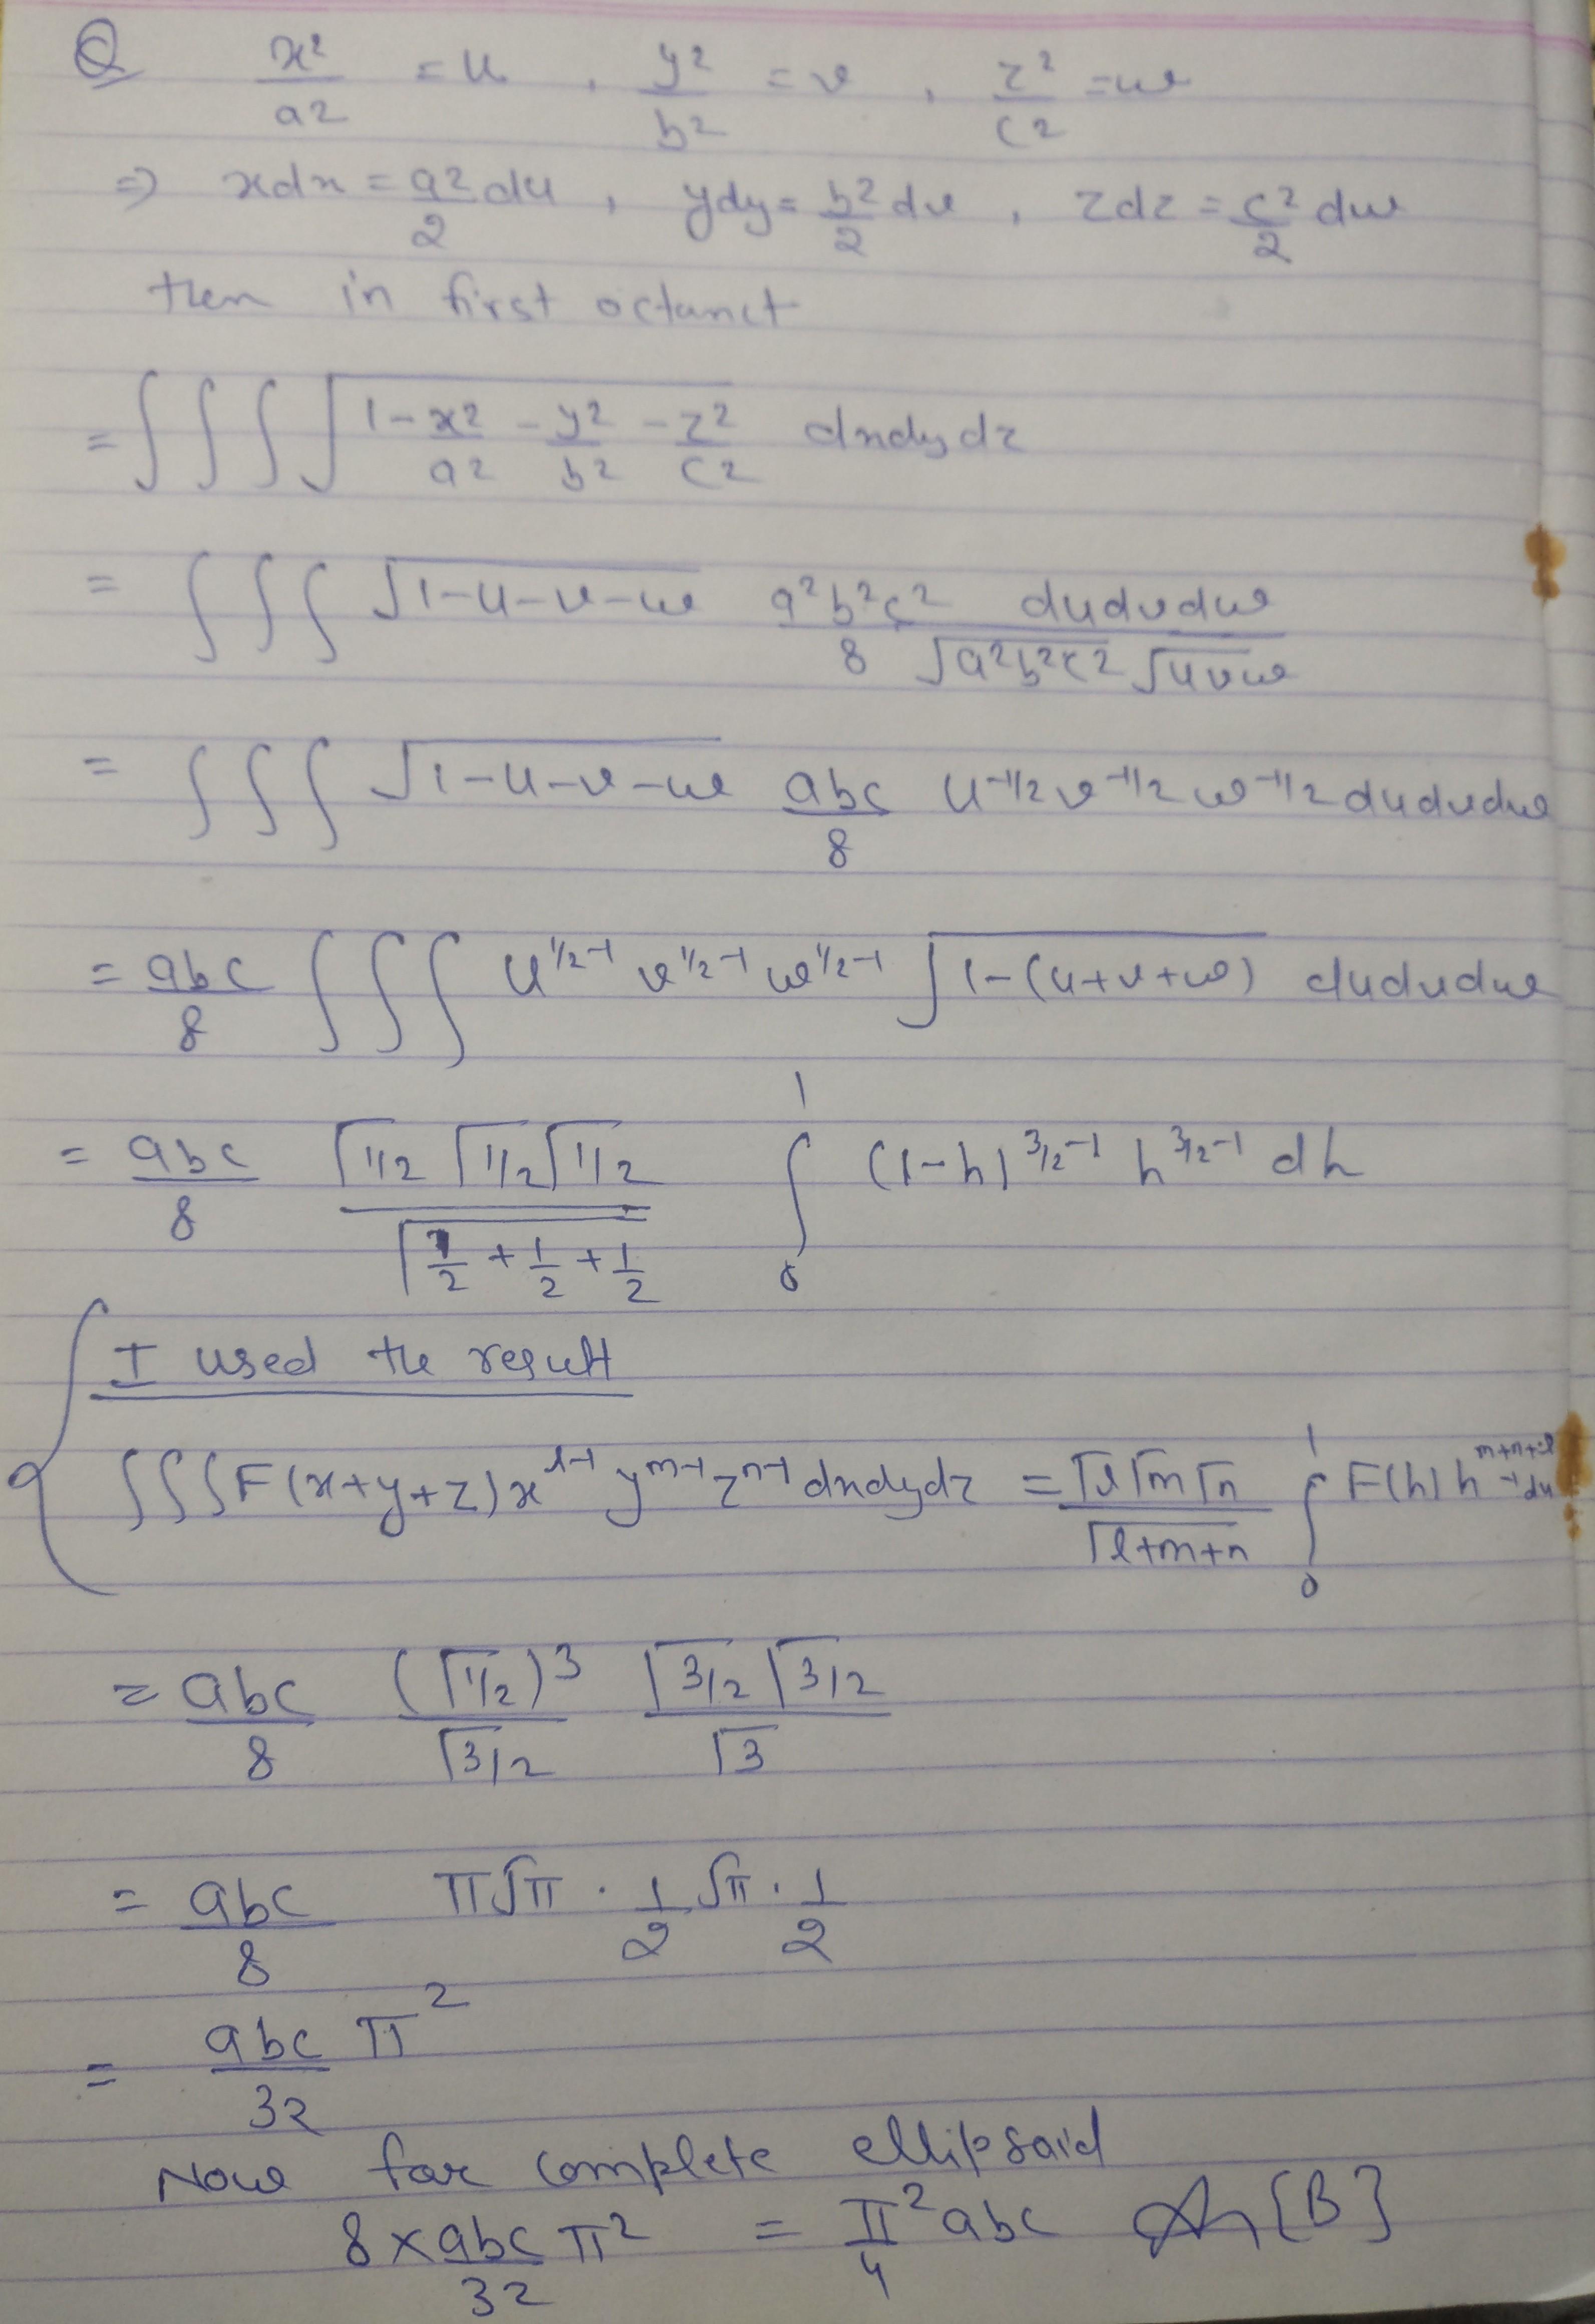 Q x²/a² = u , y²/b² = v , z²/c² = w
⇒ xdx = a²/2 du , ydy = b²/2 dv , zdz = c²/2 dw
then in first octanct
= ∫∫∫ √(1-x²/a² - y²/b² - z²/c²) dxdydz
= ∫∫∫ √(1-u-v-w) a²b²c² dudvdw / 8 √(a²b²c²) √(uvw)
= ∫∫∫ √(1-u-v-w) abc/8 u^(-1/2) v^(-1/2) w^(-1/2) dudvdw
= abc/8 ∫∫∫ u^(1/2-1) v^(1/2-1) w^(1/2-1) √(1-(u+v+w)) dudvdw
= abc/8 Γ1/2 Γ1/2 Γ1/2 / Γ(1/2 + 1/2 + 1/2) ∫₀¹ (1-h)^(3/2-1) h^(3/2-1) dh
I used the result
∫∫∫ F(x+y+z) x^(l-1) y^(m-1) z^(n-1) dxdydz = Γl Γm Γn / Γ(l+m+n) ∫₀¹ F(h) h^(m+n+l-1) du
= abc/8 (Γ1/2)³ / Γ3/2 Γ3/2 Γ3/2 / Γ3
= abc/8 π√π · 1/2 √π · 1/2
= abc/32 π²
Now for complete ellipsoid
8 × abc/32 π² = π²/4 abc An [B]